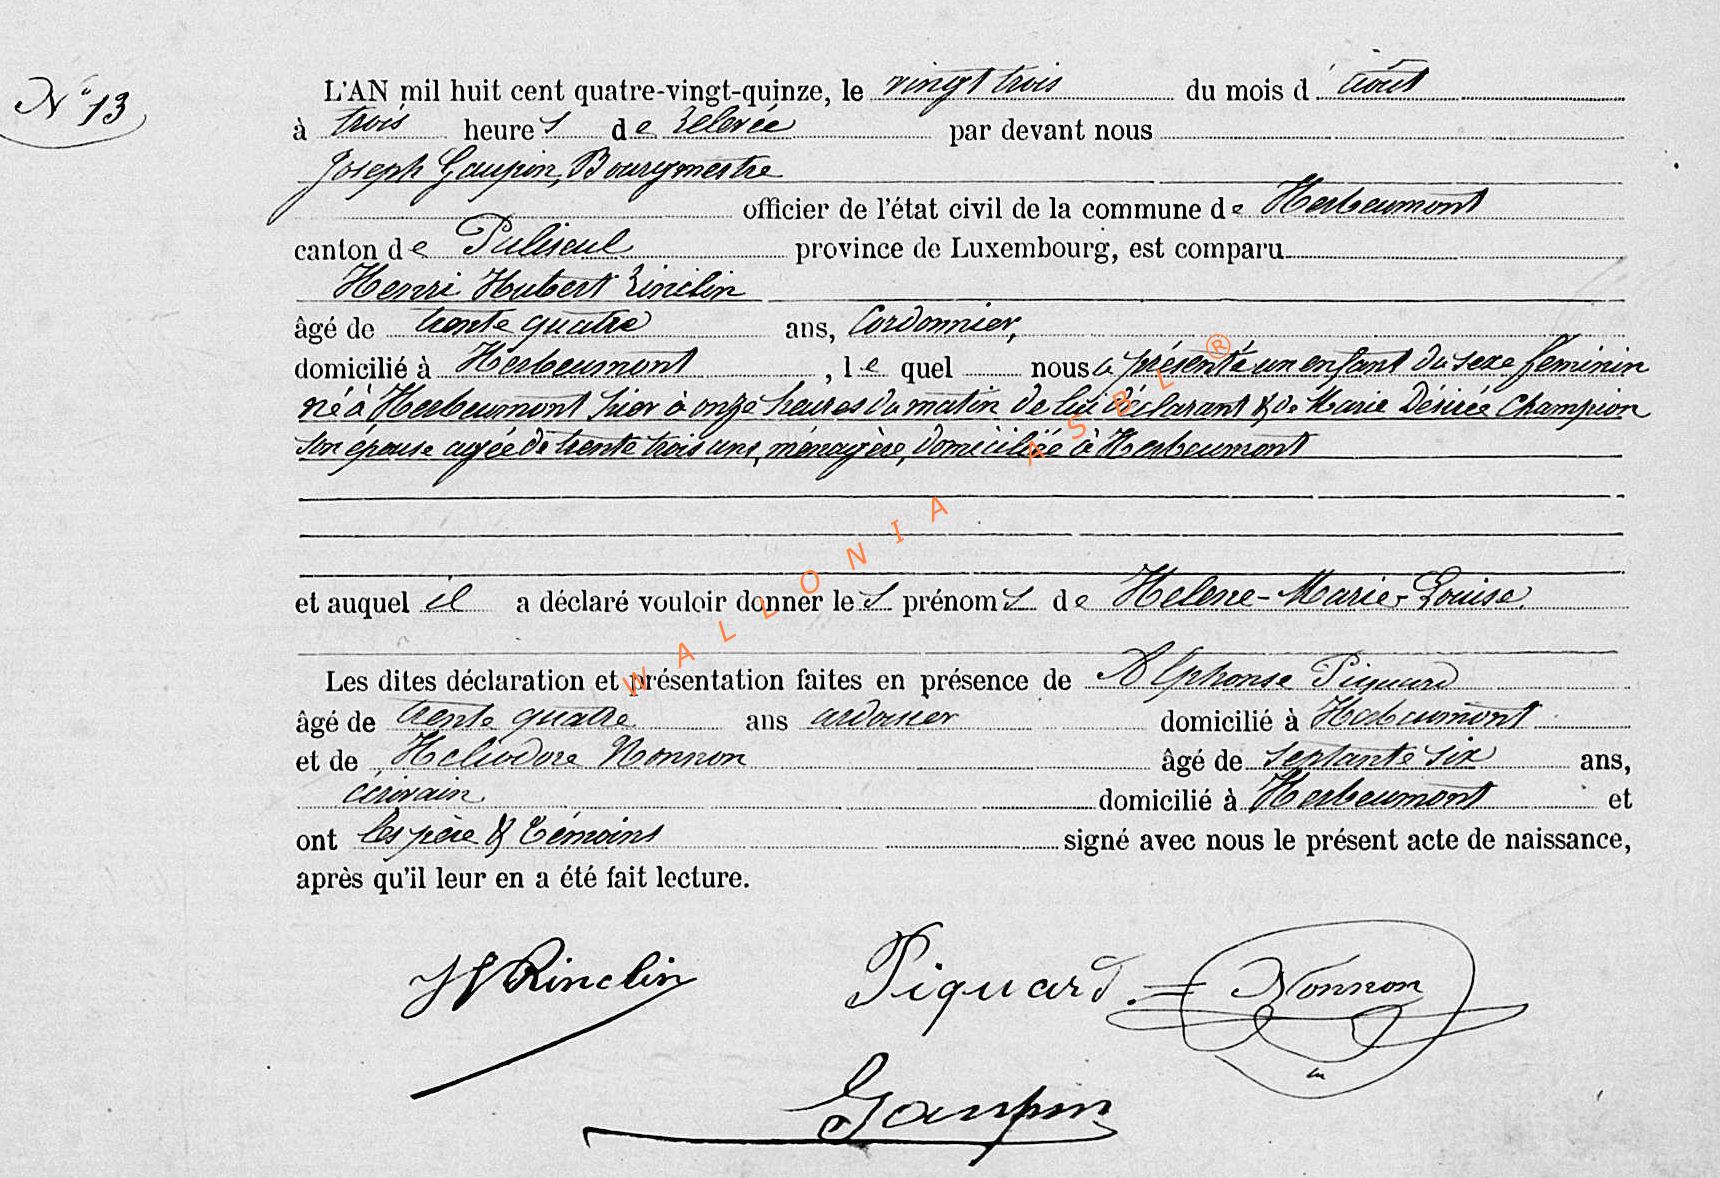 N° 13
L'AN mil huit cent quatre-vingt-quinze, le vingt trois du mois d'août
à trois heures de relevée par devant nous
Joseph Gaupin, Bourgmestre
officier de l'état civil de la commune de Herbeumont
canton de Paliseul province de Luxembourg, est comparu
Henri Hubert Rinclin
âgé de trente quatre ans, Cordonnier,
domicilié à Herbeumont, le quel nous a présenté un enfant du sexe féminin
né à Herbeumont hier à onze heures du matin de lui déclarant & de Marie Désirée Champion
son épouse agée de trente trois ans, ménagère, domiciliée à Herbeumont
et auquel il a déclaré vouloir donner les prénoms de Helene-Marie-Louise.
Les dites déclaration et présentation faites en présence de Alphonse Piquard
âgé de trente quatre ans ardoisier domicilié à Herbeumont
et de Héliodore Nonnon âgé de septante six ans,
écrivain domicilié à Herbeumont et
ont les père & témoins signé avec nous le présent acte de naissance,
après qu'il leur en a été fait lecture.
HHRinclin Piquard Nonnon
Gaupin
WALLONIA ASBL ®